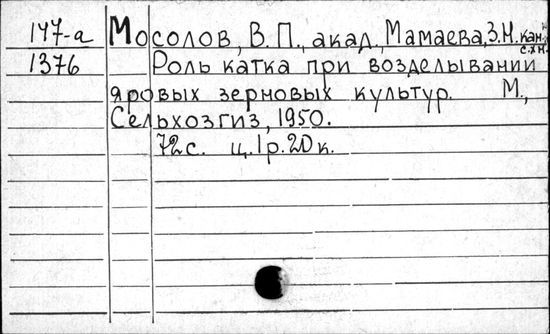 147-а Мосолов, В.П., акад., Мамаева, З.И. кан. с.х.н.
1376 Роль катка при возделывании
яровых зерновых культур. М.,
Сельхозгиз, 1950.
72с. ц.1р.20к.